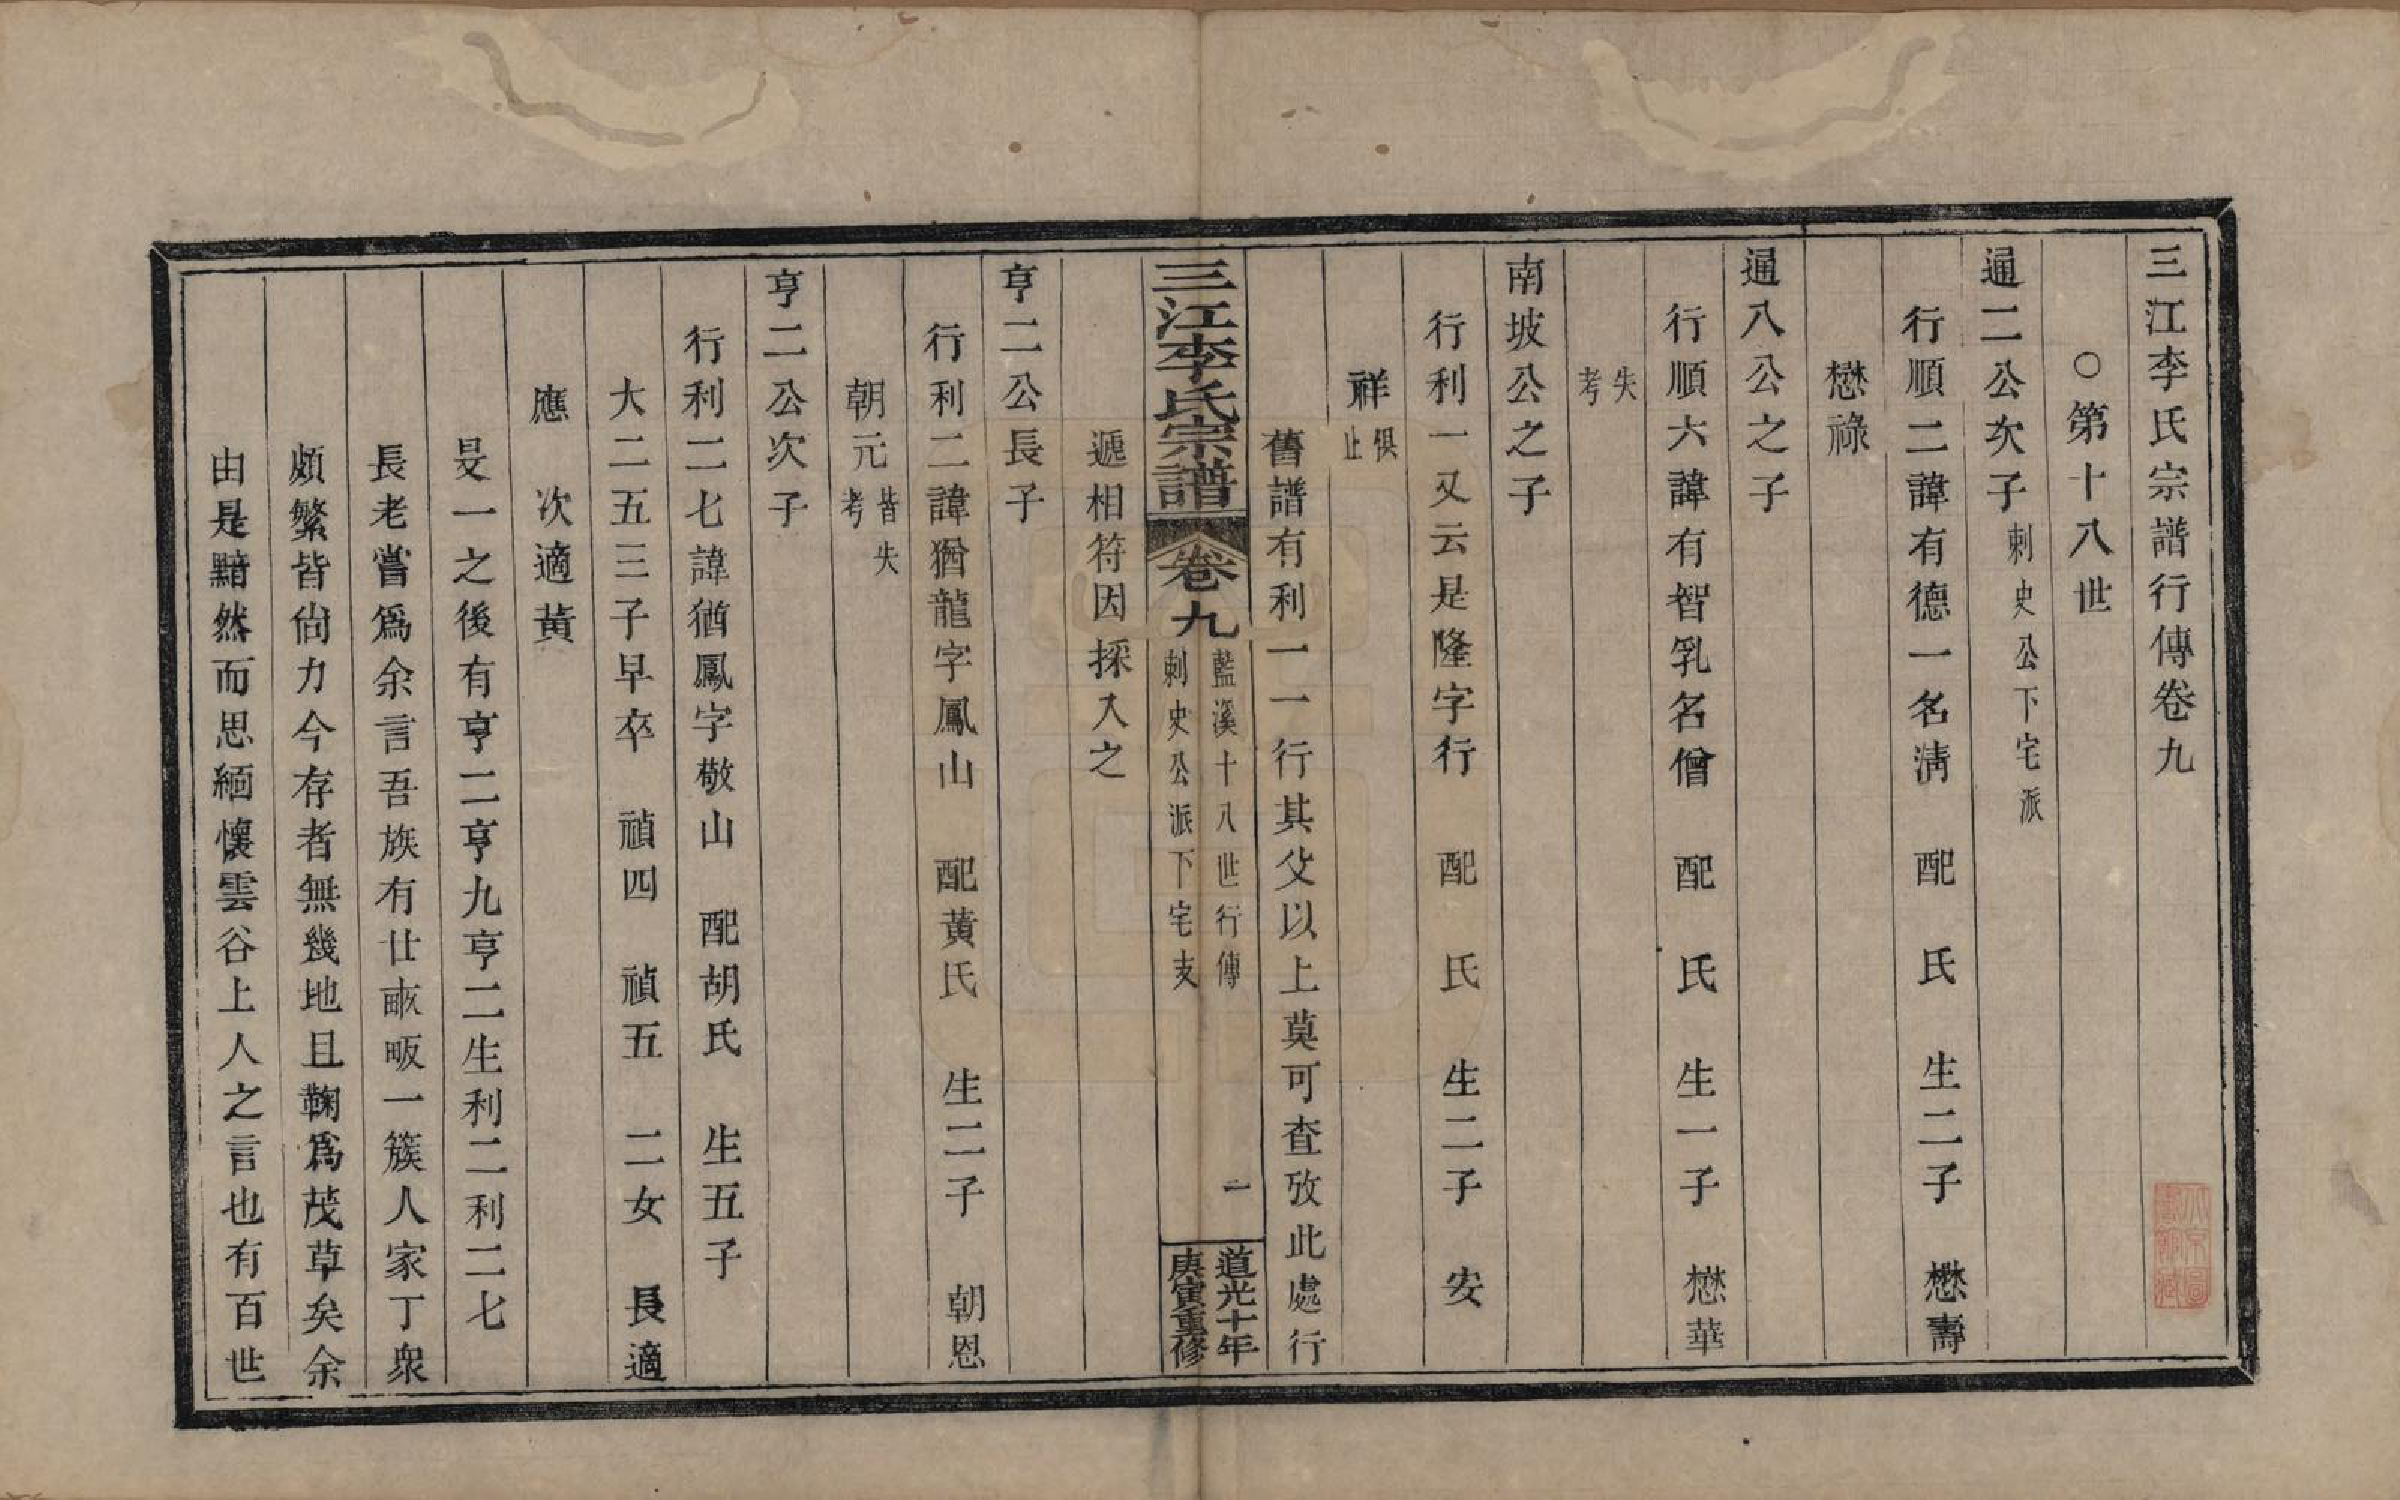 三江李氏宗譜行傳卷九
○第十八世
通二公次子刺史公下宅派
行順二諱有德一名清 配 氏 生二子 懋壽
懋祿
通八公之子
行順六諱有智乳名僧 配 氏 生一子 懋華
失考
南坡公之子
行利一又云是隆字行 配 氏 生二子 安
祥俱止
舊譜有利一一行其父以上莫可查攷此處行
三江李氏宗譜 卷九 藍溪十八世行傳 刺史公派下宅支 一 道光十年庚寅重修
遞相符因採入之
亨二公長子
行利二諱猶龍字鳳山 配黃氏 生二子 朝恩
朝元皆失考
亨二公次子
行利二七諱猶鳳字敬山 配胡氏 生五子
大二五三子早卒 禎四 禎五 二女 長適
應 次適黃
旻一之後有亨二亨九亨二生利二利二七
長老嘗爲余言吾族有廿畝畈一簇人家丁衆
頗繁皆尙力今存者無幾地且鞠爲茂草矣余
由是黯然而思緬懷雲谷上人之言也有百世